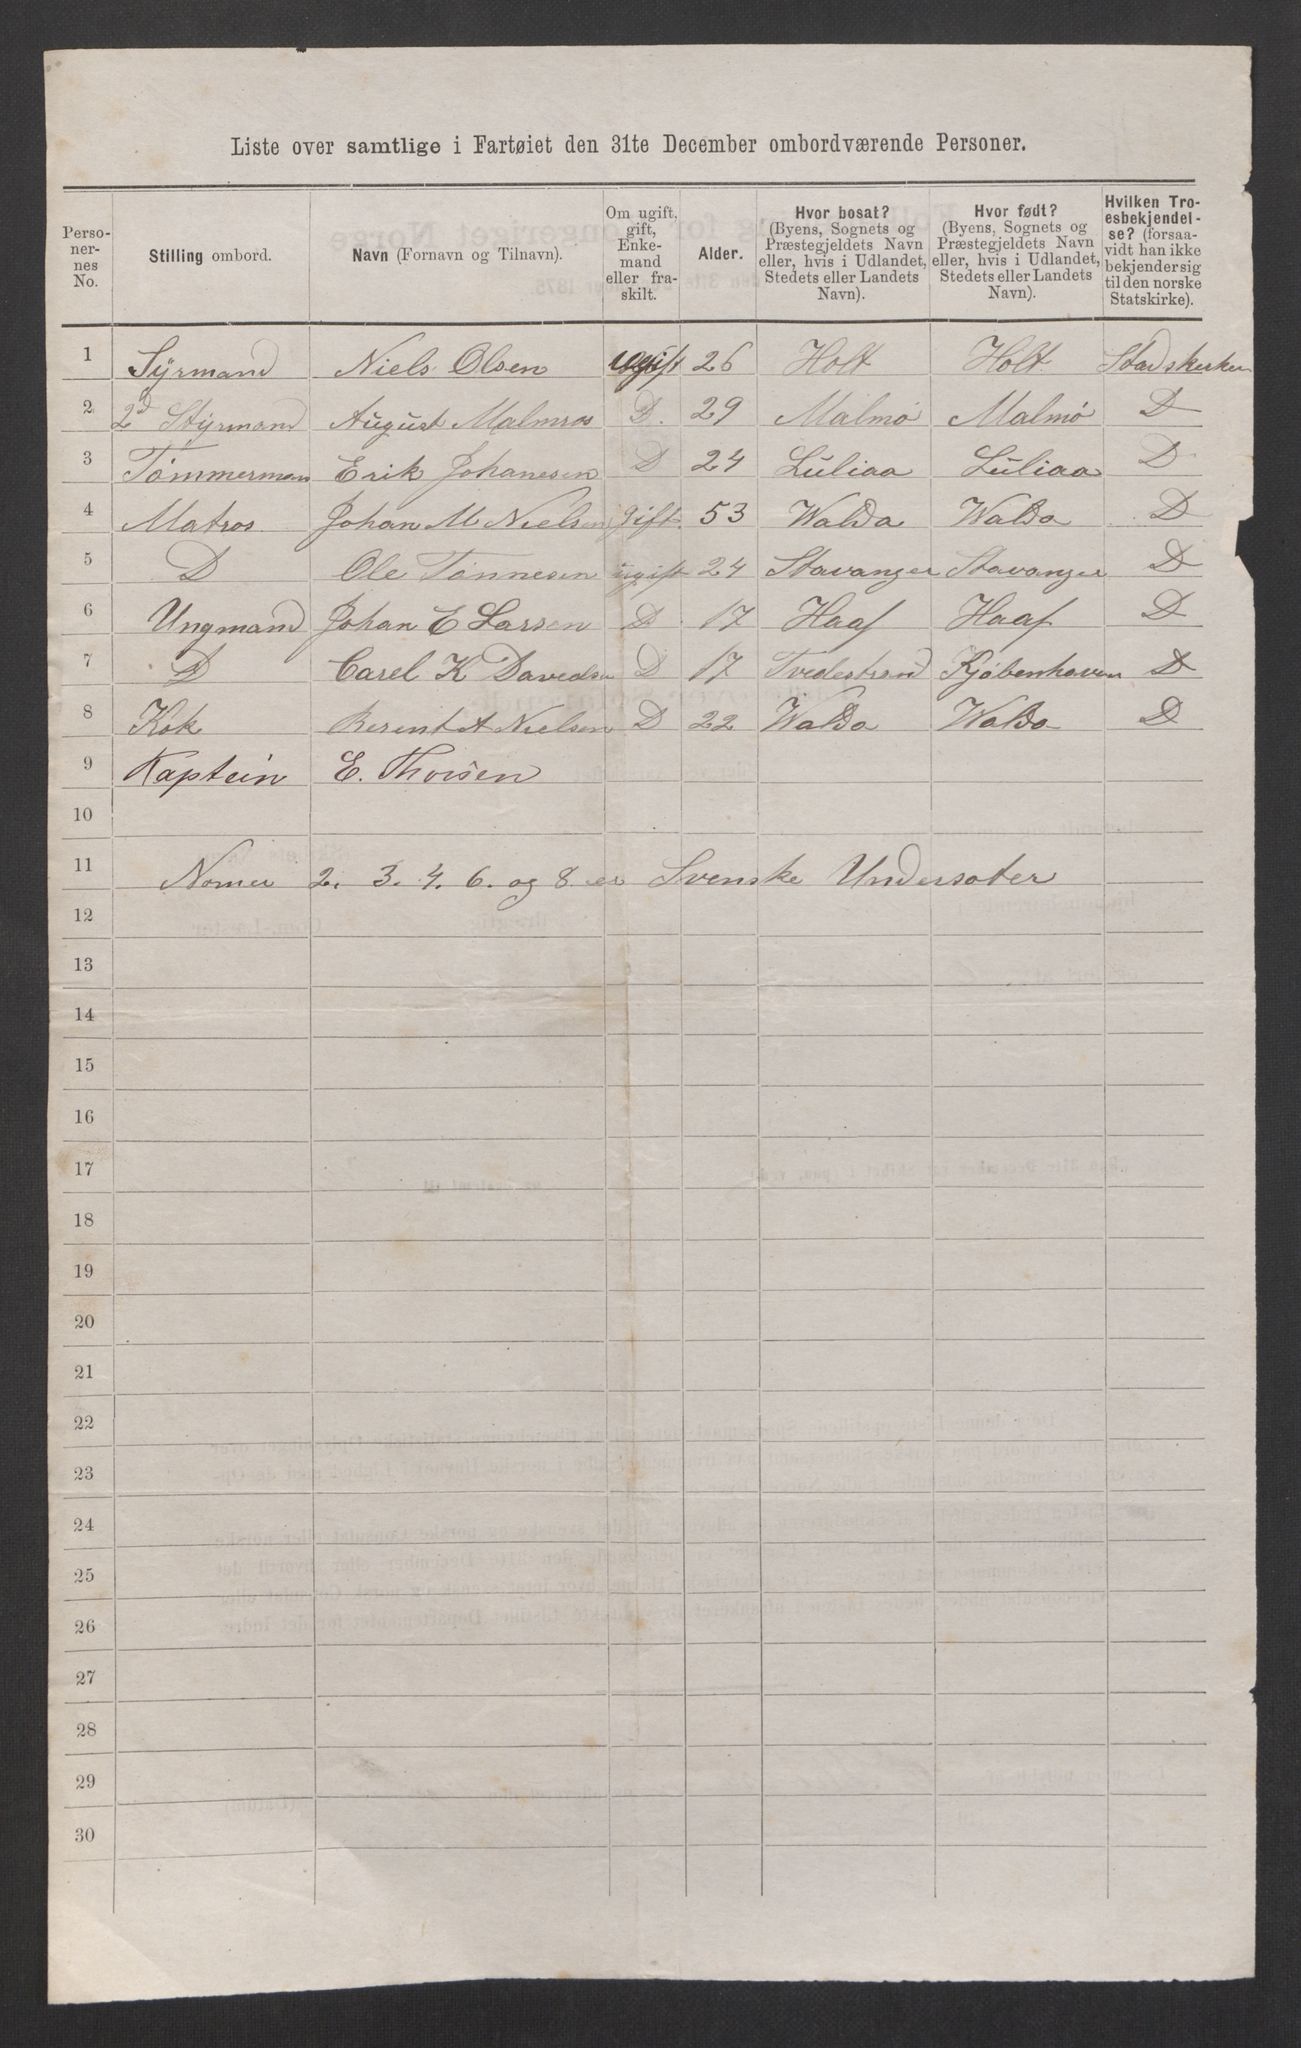 Liste over samtlige i Fartøiet den 31te December ombordværende Personer.
Personernes No. | Stilling ombord. | Navn (Fornavn og Tilnavn). | Om ugift, gift, Enkemand eller fraskilt. | Alder. | Hvor bosat? (Byens, Sognets og Præstegjeldets Navn eller, hvis i Udlandet, Stedets eller Landets Navn). | Hvor født? (Byens, Sognets og Præstegjeldets Navn eller, hvis i Udlandet, Stedets eller Landets Navn). | Hvilken Troesbekjendelse? (forsaavidt han ikke bekjender sig til den norske Statskirke).
1 Syrmand Niels Olsen ugift 26 Holt Holt Stadskirken
2 2d Styrmand August Malmros D. 29 Malmø Malmø D
3 Tømmerman Erik Johanesen D 24 Luliaa Luliaa D
4 Matros Johan M Nielsen gift 53 Walda Walda D
5 D Ole Tønnesen ugift 24 Stavanger Stavanger D
6 Ungmand Johan E Larsen D 17 Haaf Haaf D
7 D Carel K Davedsen D 17 Tvedestrand Kjøbenhaven D
8 Kok Berent A Nielsen D 22 Walda Walda D
9 Kaptein E. Thorsen
10
11 Nomer 2. 3. 4. 6. og 8. er Svenske Undersøter
12
13
14
15
16
17
18
19
20
21
22
23
24
25
26
27
28
29
30